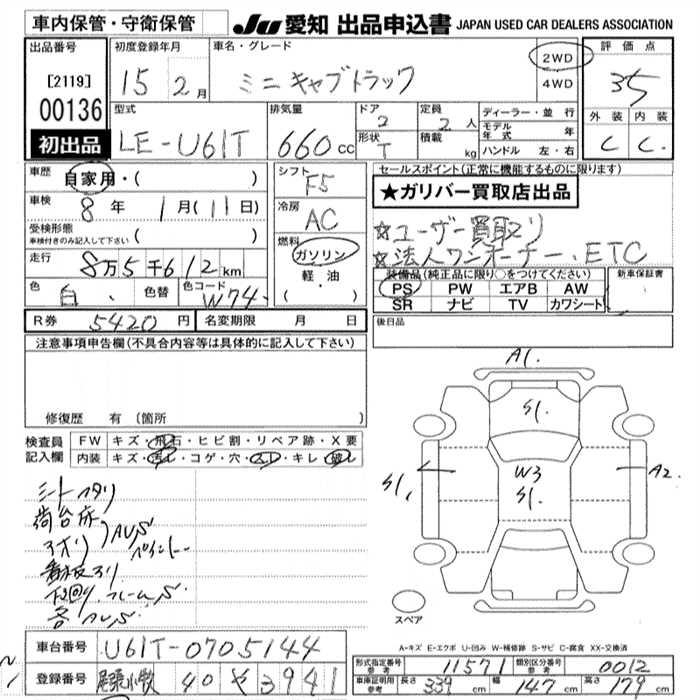 車内保管・守衛保管
JU 愛知 出品申込書 JAPAN USED CAR DEALERS ASSOCIATION
出品番号
[2119]
00136
初出品
初度登録年月
15 2月
車名・グレード
ミニキャブトラック
2WD
4WD
評価点
3.5
外装 内装
C C.
型式
LE-U61T
排気量
660 cc
ドア
2
形状
T
定員
2 人
積載
kg
ディーラー・並行
モデル年式 年
ハンドル 左・右
車歴
自家用・( )
車検
8年 1月(11日)
受検形態
車検付きのみ記入して下さい ( )
走行
8万5千612km
色
白
色替
色コード
W74
シフト
F5
冷房
AC
燃料
ガソリン
軽・油
( )
R券 5420円
名変期限 月 日
セールスポイント(正常に機能するものに限ります)
★ガリバー買取店出品
☆ユーザー買取り
☆法人ワンオーナー、ETC
装備品(純正品に限り○をつけてください)
PS PW エアB AW
SR ナビ TV カワシート
新車保証書
後日品
注意事項申告欄(不具合内容等は具体的に記入して下さい)
修復歴 有 (箇所 )
検査員記入欄
FW キズ・飛石・ヒビ割・リペア跡・X要
内装 キズ・汚レ・コゲ・穴・スレ・キレ・破レ
シートヘタリ
荷台床
アオリ
AUS
ペイント
看板アリ
下回り フレームS
各AUS
A1.
S1.
W3
S1.
S1,
A2.
スペア
A-キズ E-エクボ U-凹み W-補修跡 S-サビ C-腐食 XX-交換済
車台番号 U61T-0705144
登録番号 尾張小牧 40 や 3941
形式指定番号 参考 11571
類別区分番号 参考 0012
車庫証明用 参考 長さ 339 cm 幅 147 cm 高さ 179 cm